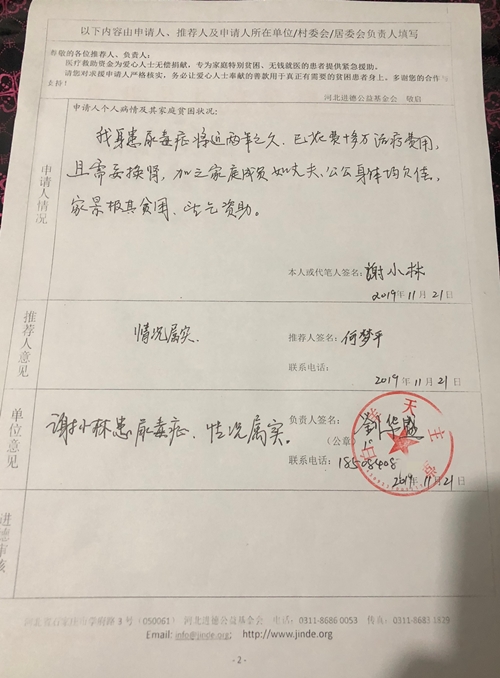 以下内容由申请人、推荐人及申请人所在单位/村委会/居委会负责人填写
尊敬的各位推荐人、负责人：
医疗救助资金为爱心人士无偿捐献，专为家庭特别贫困、无钱就医的患者提供紧急援助。
请您对求援申请人严格核实，务必让爱心人士奉献的善款用于真正有需要的贫困患者身上，多谢您的合作
支持！
河北进德公益基金会 敬启
申请人情况
申请人个人病情及其家庭贫困状况：
我身患尿毒症将近两年之久、已花费十多万治疗费用，
且需要换肾，加之家庭成员如丈夫、公公身体均欠佳，
家景极其贫困、乞资助。
本人或代笔人签名：谢小林
2019年11月21日
推荐人意见
情况属实、
推荐人签名：何梦平
联系电话：
2019年11月21日
单位意见
谢小林患尿毒症、情况属实。
负责人签名：劉华盛
（公章）
联系电话：
2019年11月21日
天主
进德审核
河北省石家庄市学府路3号（050061） 河北进德公益基金会 电话：0311-8686 0053 传真：0311-8683 1829
Email: info@jinde.org; http://www.jinde.org
- 2 -